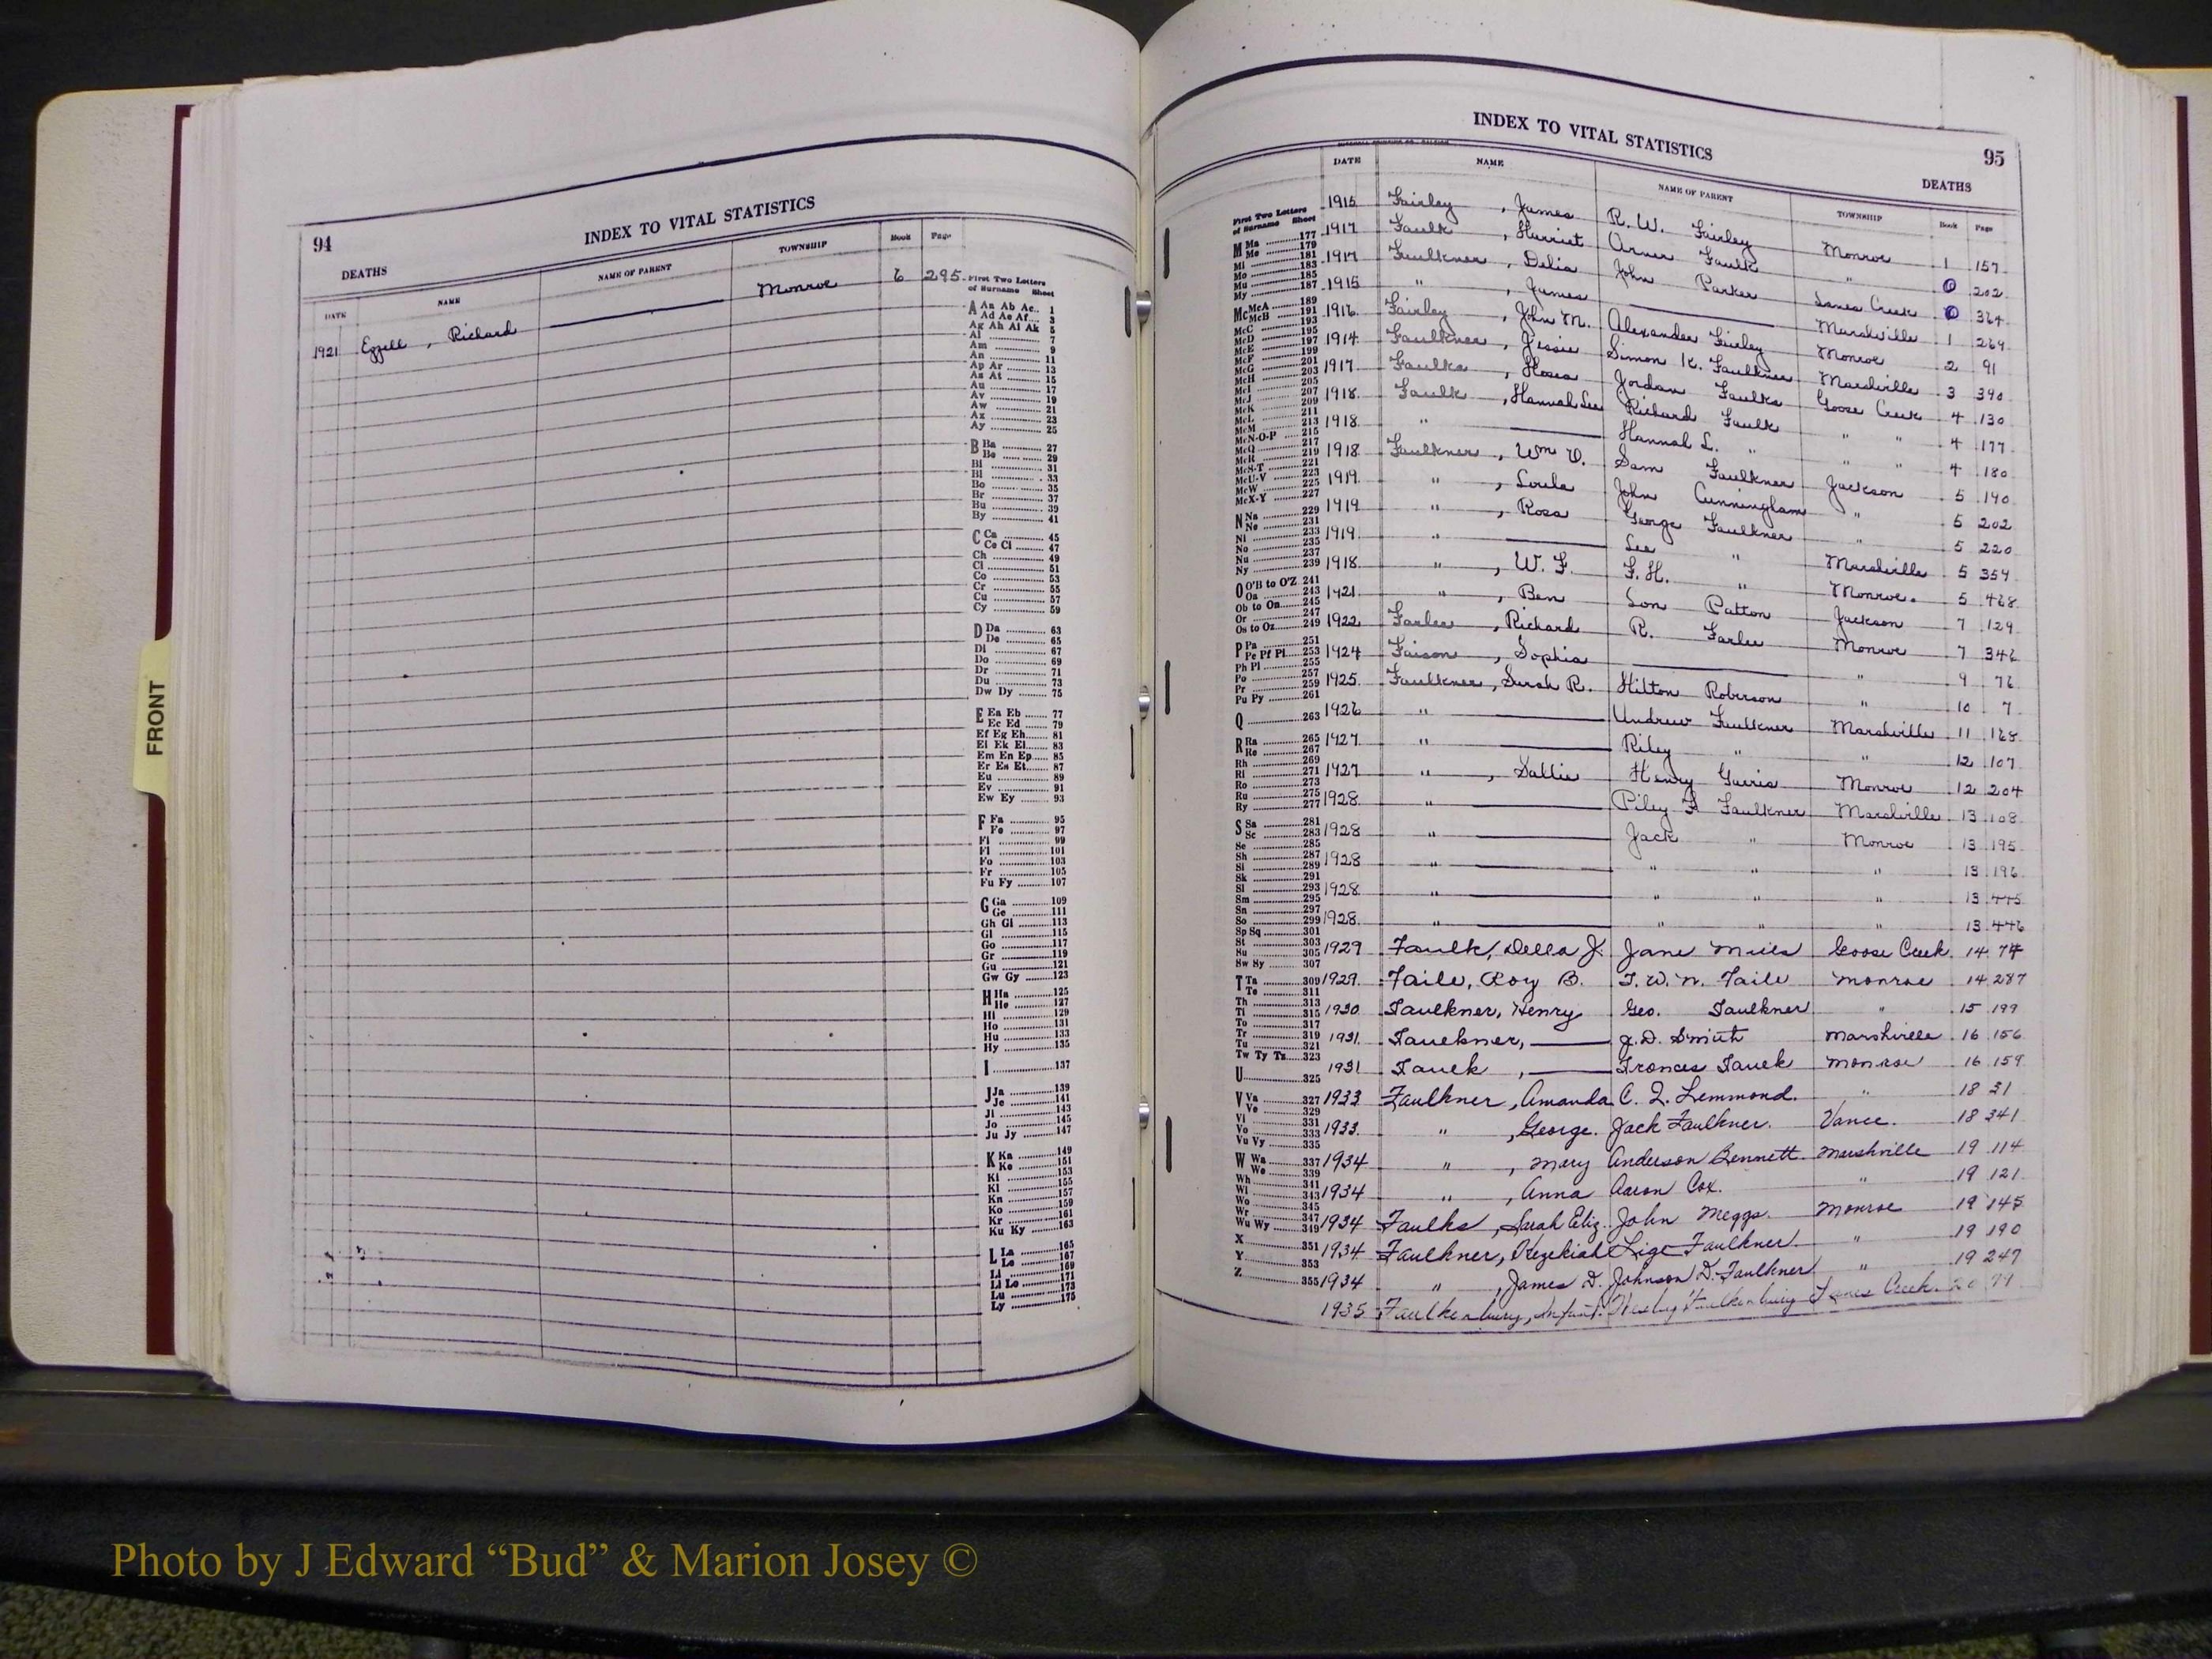 94
INDEX TO VITAL STATISTICS
DEATHS
DATE NAME NAME OF PARENT TOWNSHIP Book Page
1921 Ezzell, Richard Monroe 6 295
First Two Letters
of Surname Sheet
A Aa Ab Ac 1
Ad Ae Af 3
Ag Ah Ai Ak 5
Al 7
Am 9
An 11
Ap Ar 13
As At 15
Au 17
Av 19
Aw 21
Ax 23
Ay 25
B Ba 27
Be 29
Bi 31
Bl 33
Bo 35
Br 37
Bu 39
By 41
C Ca 45
Ce Ci 47
Ch 49
Cl 51
Co 53
Cr 55
Cu 57
Cy 59
D Da 63
De 65
Di 67
Do 69
Dr 71
Du 73
Dw Dy 75
E Ea Eb 77
Ec Ed 79
Ef Eg Eh 81
Ei Ek El 83
Em En Ep 85
Er Es Et 87
Eu 89
Ev 91
Ew Ey 93
F Fa 95
Fe 97
Fi 99
Fl 101
Fo 103
Fr 105
Fu Fy 107
G Ga 109
Ge 111
Gh Gi 113
Gl 115
Go 117
Gr 119
Gu 121
Gw Gy 123
H Ha 125
He 127
Hi 129
Ho 131
Hu 133
Hy 135
I 137
J Ja 139
Je 141
Ji 143
Jo 145
Ju Jy 147
K Ka 149
Ke 151
Ki 153
Kl 155
Kn 157
Ko 159
Kr 161
Ku Ky 163
L La 165
Le 167
Li 169
Ll Lo 171
Lu 173
Ly 175
INDEX TO VITAL STATISTICS
95
DEATHS
DATE NAME NAME OF PARENT TOWNSHIP Book Page
First Two Letters
of Surname Sheet
M Ma 177
Me 179
Mi 181
Mo 183
Mu 185
My 187
McMcA 189
McB 191
McC 193
McD 195
McE 197
McF 199
McG 201
McH 203
McI 205
McJ 207
McK 209
McL 211
McM 213
McN-O-P 215
McQ 217
McR 219
McS-T 221
McU-V 223
McW 225
McX-Y 227
N Na 229
Ne 231
Ni 233
No 235
Nu 237
Ny 239
O O'B to O'Z 241
Oa 243
Ob to On 245
Or 247
Os to Oz 249
P Pa 251
Pe Pf Pi 253
Ph Pl 255
Po 257
Pr 259
Pu Py 261
Q 263
R Ra 265
Re 267
Rh 269
Ri 271
Ro 273
Ru 275
Ry 277
S Sa 281
Sc 283
Se 285
Sh 287
Si 289
Sk 291
Sl 293
Sm 295
Sn 297
So 299
Sp Sq 301
St 303
Su 305
Sw Sy 307
T Ta 309
Te 311
Th 313
Ti 315
To 317
Tr 319
Tu 321
Tw Ty Tz 323
U 325
V Va 327
Ve 329
Vi 331
Vo 333
Vu Vy 335
W Wa 337
We 339
Wh 341
Wi 343
Wo 345
Wr 347
Wu Wy 349
X 351
Y 353
Z 355
1915 Fairley, James R. W. Fairley Monroe 1 157
1917 Faulk, Harriet Arner Faulk " 0 202
1917 Faulkner, Delia John Parker Lanes Creek 0 364
1915 ", James Marshville 1 269
1916 Fairley, John M. Alexander Fairley Monroe 2 91
1914 Faulkner, Jessie Simon K. Faulkner Marshville 3 390
1917 Faulks, Hosea Jordan Faulks Goose Creek 4 130
1918 Faulk, Hannah Lee Richard Faulk " " 4 177
1918 " Hannah L. " " " 4 180
1918 Faulkner, Wm O. Sam Faulkner Jackson 5 190
1919 ", Loula John Cunningham " 5 202
1919 ", Rosa George Faulkner " 5 220
1919 " Lee " Marshville 5 354
1918 ", W. F. F. H. " Monroe 5 468
1921 ", Ben Lon Patton Jackson 7 129
1922 Farlee, Richard R. Farlee Monroe 7 346
1924 Faison, Sophia " 9 76
1925 Faulkner, Sarah R. Hilton Roberson " 10 7
1926 " Andrew Faulkner Marshville 11 168
1927 " Riley " " 12 107
1927 ", Sallie Henry Monroe 12 204
1928 " Riley F Faulkner Marshville 13 108
1928 " Jack " Monroe 13 195
1928 " " " " 13 196
1928 " " " " 13 445
1928 " " " " 13 446
1929 Faulk, Della J. Jane Mills Goose Creek 14 74
1929 Faile, Roy B. T. W. N. Faile Monroe 14 287
1930 Faulkner, Henry Geo. Faulkner " 15 199
1931 Faulkner, J. D. Smith Marshville 16 156
1931 Faulk, Frances Faulk Monroe 16 159
1933 Faulkner, Amanda C. Q. Lemmond. " 18 31
1933 ", George. Jack Faulkner. Vance. 18 341
1934 ", Mary Anderson Bennett Marshville 19 114
1934 ", Anna Aaron Cox. " 19 121
1934 Faulks, Sarah Eliz. John Meggs. Monroe 19 145
1934 Faulkner, Hezekiah Lige Faulkner. " 19 190
1934 ", James D. Johnson D. Faulkner " 19 247
1935 Faulkenbury, Infant. Faulkenbury Lanes Creek. 20 79
FRONT
Photo by J Edward “Bud” & Marion Josey ©